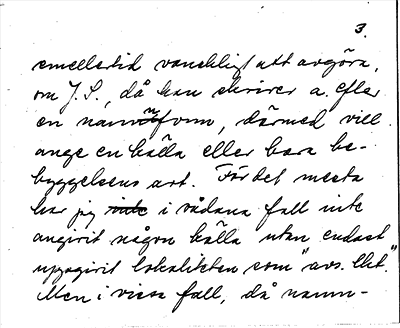 3.
emellertid vanskligt att avgöra,
om J. S., då han skriver a. efter
en namnform, därmed vill
ange en källa eller bara be-
byggelsens art. För det mesta
har jag inte i sådana fall inte
angivit någon källa utan endast
uppgivit lokaliteten som "avs. lht."
Men i vissa fall, då namn-